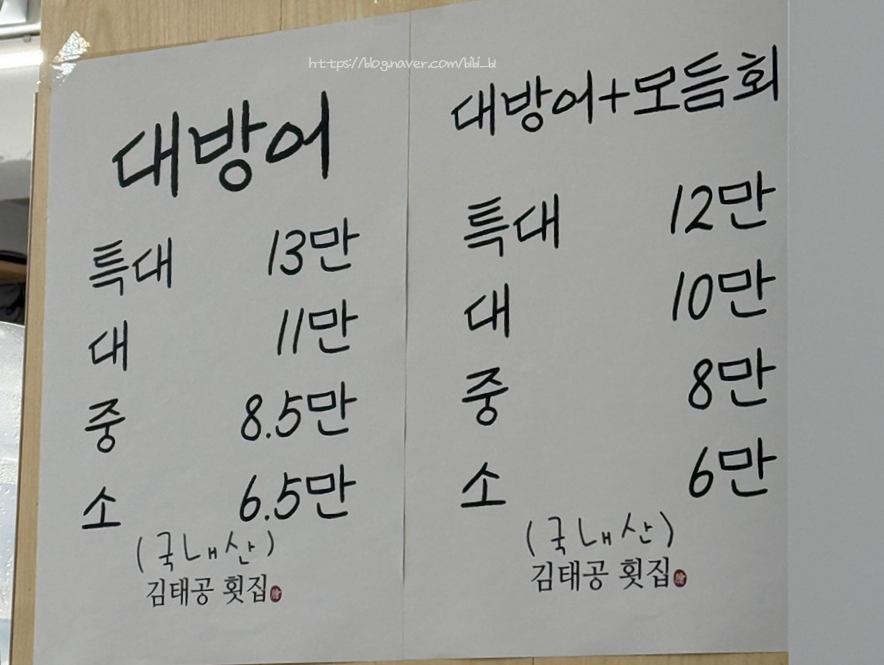 https://blog.naver.com/bibi_bl
대방어
특대 13만
대 11만
중 8.5만
소 6.5만
(국내산)
김태공 횟집
대방어+모듬회
특대 12만
대 10만
중 8만
소 6만
(국내산)
김태공 횟집